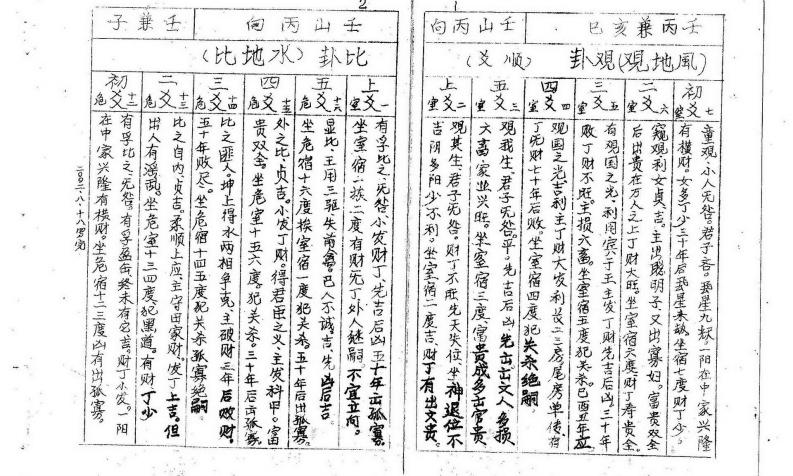 1
壬丙兼亥巳
壬山丙向
(風地觀)觀卦
(順爻)
初爻 室七
童观,小人无咎。君子吝。
有横财。女多丁少三十年后
坐宿七度财丁少。
二爻 室六
窺观利女貞吉。主出聪明子又出寡妇。富贵双全
后出贵在万人之上丁财大旺。坐室宿六度财丁寿贵全。
三爻 室五
有观国之光,利用宾于王主发丁财先吉后凶。三十年
败丁财不旺。主损六畜。坐室宿五度犯关杀。己酉丑年应
四爻 室四
观国之光吉利主丁财大发利长二三房尾房单传有
丁无财七十年后败。坐室宿四度犯关杀绝嗣。
五爻 室三
观我生,君子无咎。平。先吉后凶
六畜家业兴旺。坐室宿三度富贵成多出官贵
上爻 室二
观其生,君子无咎。财丁不旺先天失位,坐神退位不
吉阴多阳少不利。坐室宿二度吉,财丁有出文贵。
2
壬山丙向
壬兼子
比卦(水地比)
上爻 室一
有孚比之,无咎。小发财丁先吉后凶五十年出孤寡。
坐室宿一度、二度有财无丁外人继嗣不宜立向。
五爻 危十六
显比,王用三驱失前禽。邑人不诫吉先凶后吉。
坐危宿十六度挨室宿一度犯关杀。五十年后出孤寡。
四爻 危十五
外之比,貞吉。小发丁财。得君臣之义,主发科甲。富
贵双全。坐危室十五六度。犯关杀。三十年后出孤寡
三爻 危十四
比之匪人。坤上得水两相争克。主破财三年后败财
五十年败尽。坐危宿十四五度犯关杀孤寡绝嗣
二爻 危十三
比之自内,貞吉。柔顺上应主守田家财。发丁上吉。但
出人有淫乱。坐危室十三四度犯黑道。有财丁少
初爻 危十二
有孚比之,无咎。有孚盈缶终来有它吉。财丁小发。一阳
在中家兴隆有横财。坐危宿十二三度凶有出孤寡。
二〇〇二.八.十八